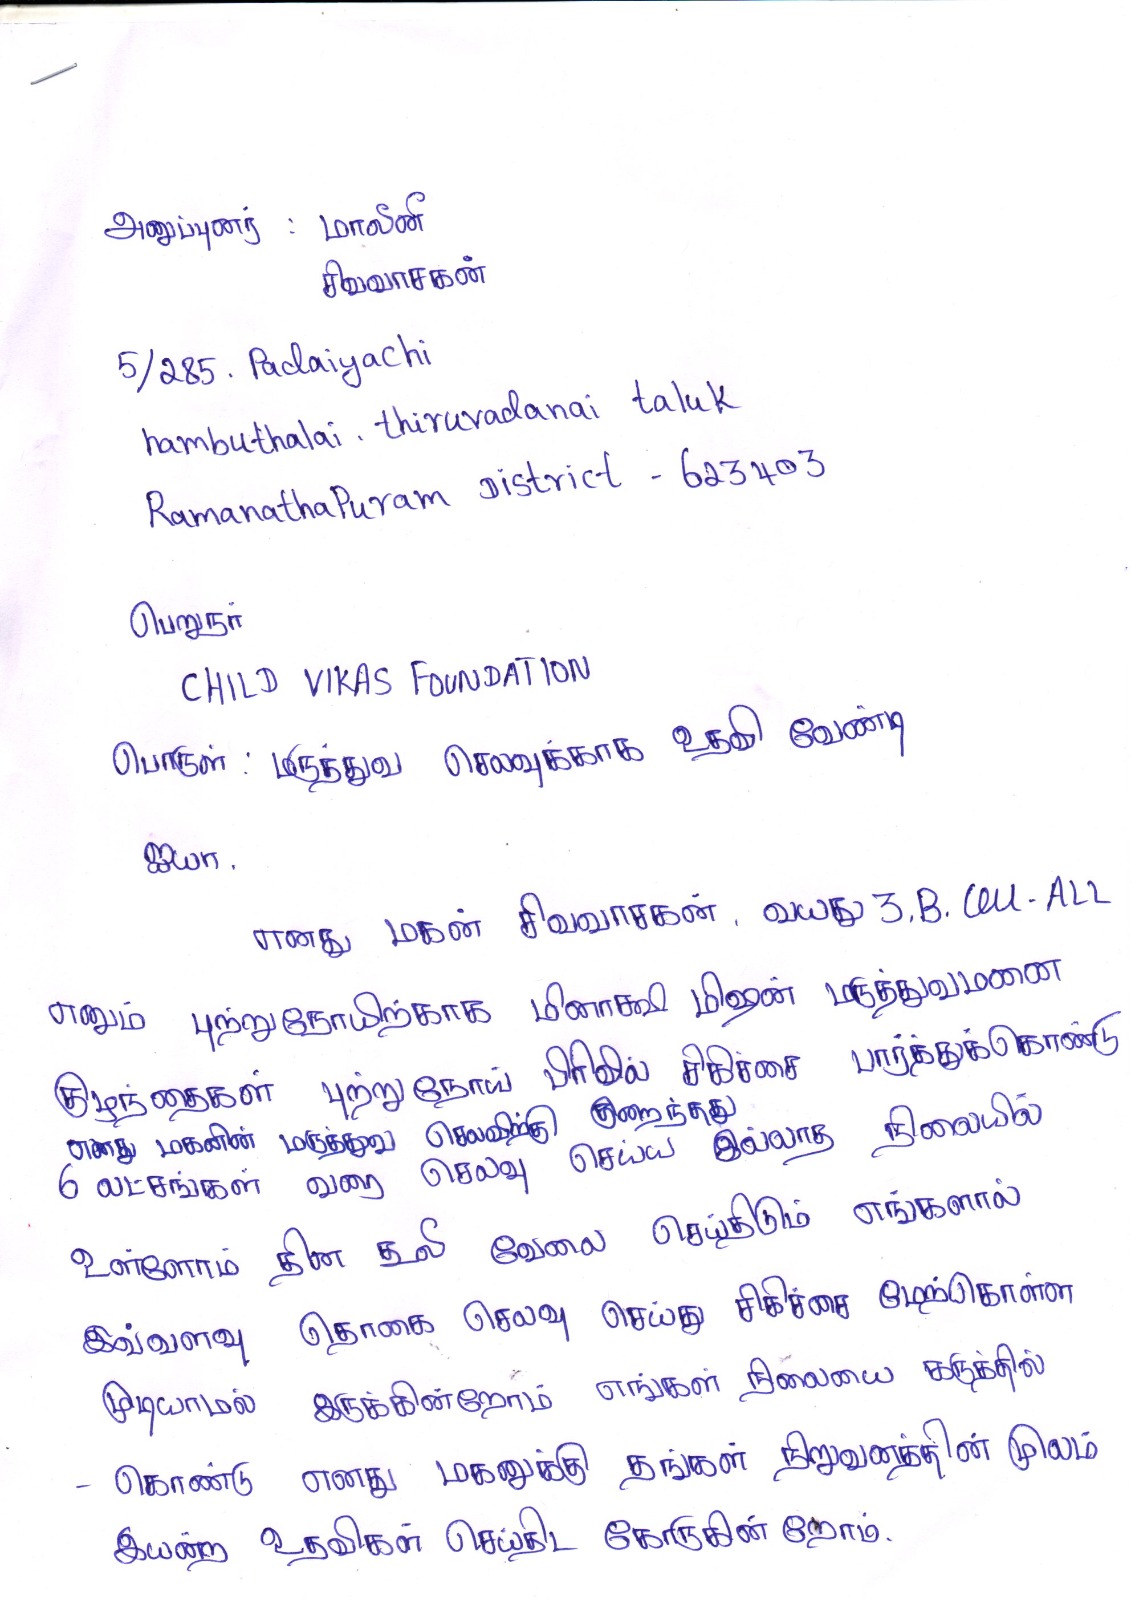 அனுப்புனர் : மாலினி
சிவவாசகன்
5/285. Padaiyachi
nambuthalai. thiruvadanai taluk
RamanathaPuram District - 623403
பெறுநர்
CHILD VIKAS FOUNDATION
பொருள் : மருத்துவ செலவுக்காக உதவி வேண்டி
ஐயா.
எனது மகன் சிவவாசகன். வயது 3. B. Cell - ALL
எனும் புற்றுநோயிற்காக மினாக்ஷி மிஷன் மருத்துவமனை
குழந்தைகள் புற்றுநோய் பிரிவில் சிகிச்சை பார்த்துக்கொண்டு
எனது மகனின் மருத்துவ செலவிற்கு குறைந்தது
6 லட்சங்கள் வரை செலவு செய்ய இல்லாத நிலையில்
உள்ளோம் தின கூலி வேலை செய்திடும் எங்களால்
இவ்வளவு தொகை செலவு செய்து சிகிச்சை மேற்கொள்ள
முடியாமல் இருக்கின்றோம் எங்கள் நிலையை கருத்தில்
- கொண்டு எனது மகனுக்கு தங்கள் நிறுவனத்தின் மூலம்
இயன்ற உதவிகள் செய்திட கோருகின்றோம்.